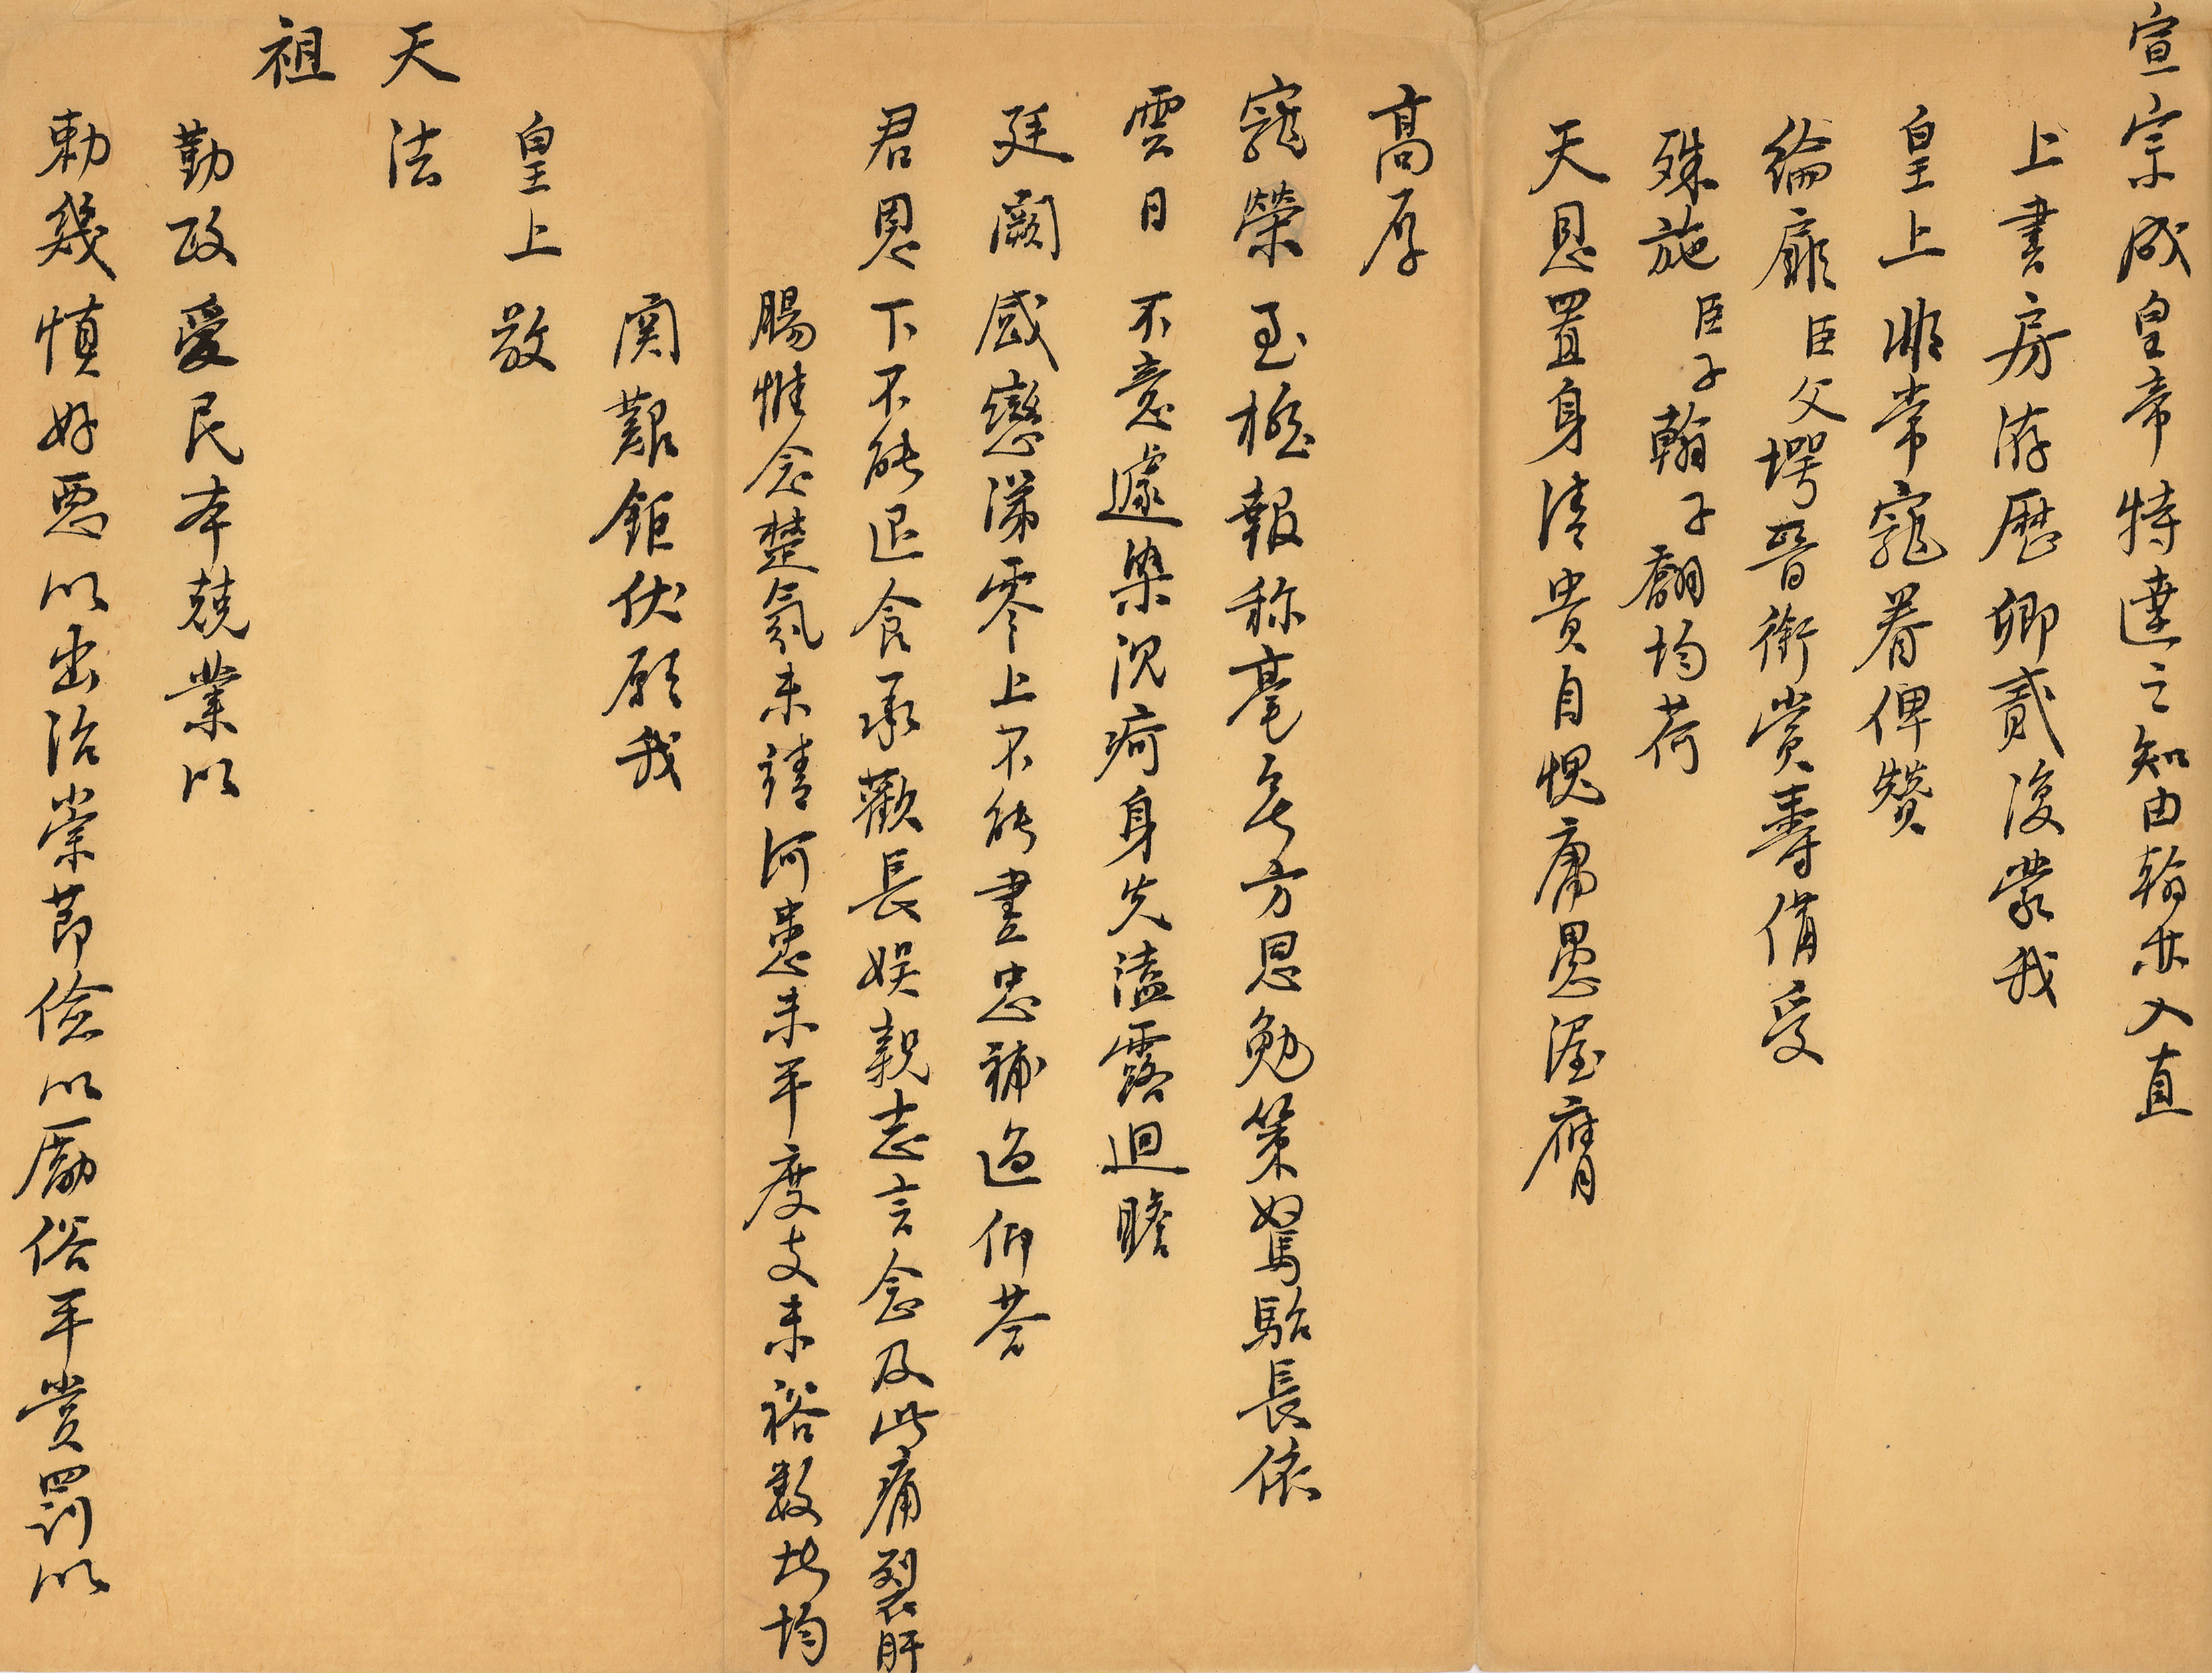 宣宗成皇帝特達之知由翰林入直
上書房洊歷卿貳復蒙我
皇上非常寵眷俾贊
綸扉臣父堮晉銜賞壽備受
殊施臣子翰子翮均荷
天恩置身清貴自愧庸愚渥膺
高厚
寵榮至極報称毫無方思勉策駑駘長依
雲日不意遽染沉疴身先溘露迴瞻
廷闕感戀涕零上不能盡忠補過仰荅
君恩下不能退食承歡長娛親志言念及此痛裂肝
腸惟念楚氛未靖河患未平度支未裕數端均
関艱鉅伏願我
皇上敬
天法
祖
勤政愛民本兢業以
勅幾慎好惡以出治崇節儉以勵俗平賞罰以